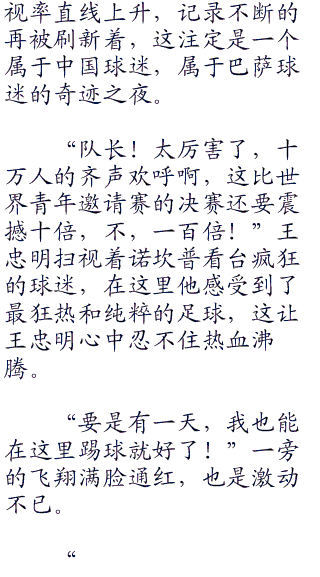 视率直线上升，记录不断的
再被刷新着，这注定是一个
属于中国球迷，属于巴萨球
迷的奇迹之夜。
“队长！太厉害了，十
万人的齐声欢呼啊，这比世
界青年邀请赛的决赛还要震
撼十倍，不，一百倍！”王
忠明扫视着诺坎普看台疯狂
的球迷，在这里他感受到了
最狂热和纯粹的足球，这让
王忠明心中忍不住热血沸
腾。
“要是有一天，我也能
在这里踢球就好了！”一旁
的飞翔满脸通红，也是激动
不已。
“